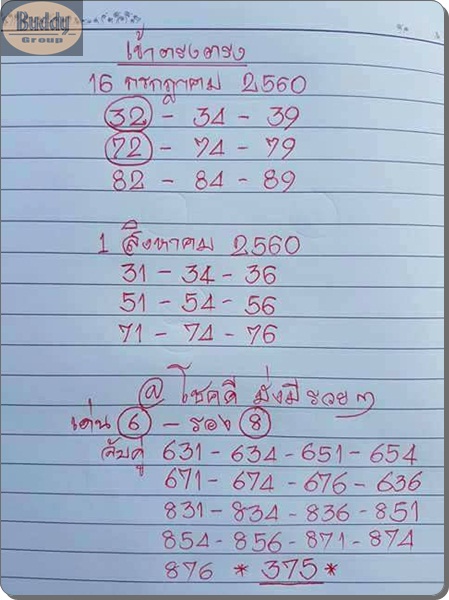 Buddy
Group
เข้าตรงตรง
16 กรกฎาคม 2560
32 - 34 - 39
72 - 74 - 79
82 - 84 - 89
1 สิงหาคม 2560
31 - 34 - 36
51 - 54 - 56
71 - 74 - 76
@ โชคดี มั่งมี รวยๆ
เด่น 6 - รอง 8
จับคู่ 631 - 634 - 651 - 654
671 - 674 - 676 - 636
831 - 834 - 836 - 851
854 - 856 - 871 - 874
876 * 375 *